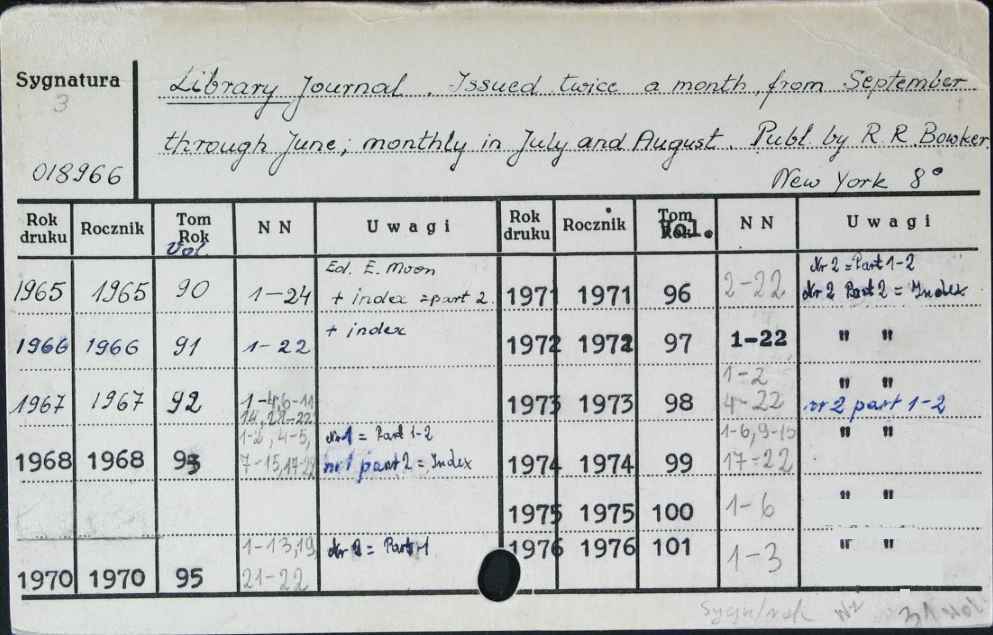 Sygnatura
3
018966
Library Journal. Issued twice a month, from September
through June; monthly in July and August. Publ. by R R Bowker,
New York 8°
Rok druku Rocznik Tom Rok Vol. NN Uwagi
1965 1965 90 1-24 Ed. E. Moon + index = part 2.
1966 1966 91 1-22 + index
1967 1967 92 1-4,6-11
1968 1968 93 1-2, 4-5, 7-15, Nr 1 = Part 1-2 nr 1 part 2 = Index
1970 1970 95 1-13,19 21-22 Nr 2 = Part 1
Rok druku Rocznik Tom Vol. NN Uwagi
1971 1971 96 2-22 Nr 2 = Part 1-2 Nr 2 Part 2 = Index
1972 1972 97 1-22 " "
1973 1973 98 1-2 4-22 " " nr 2 part 1-2
1974 1974 99 1-6, 9-15 17-22 " "
1975 1975 100 1-6 " "
1976 1976 101 1-3 " "